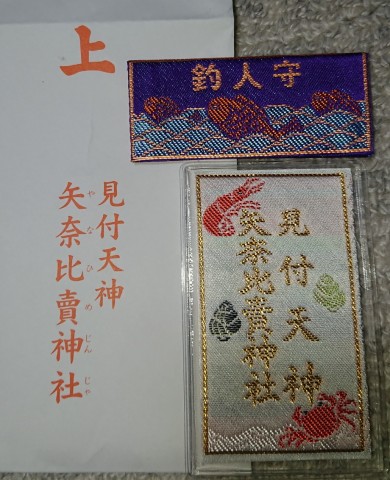 上
見付天神
矢奈比賣神社
やなひめじんじゃ
釣人守
見付天神
矢奈比賣神社